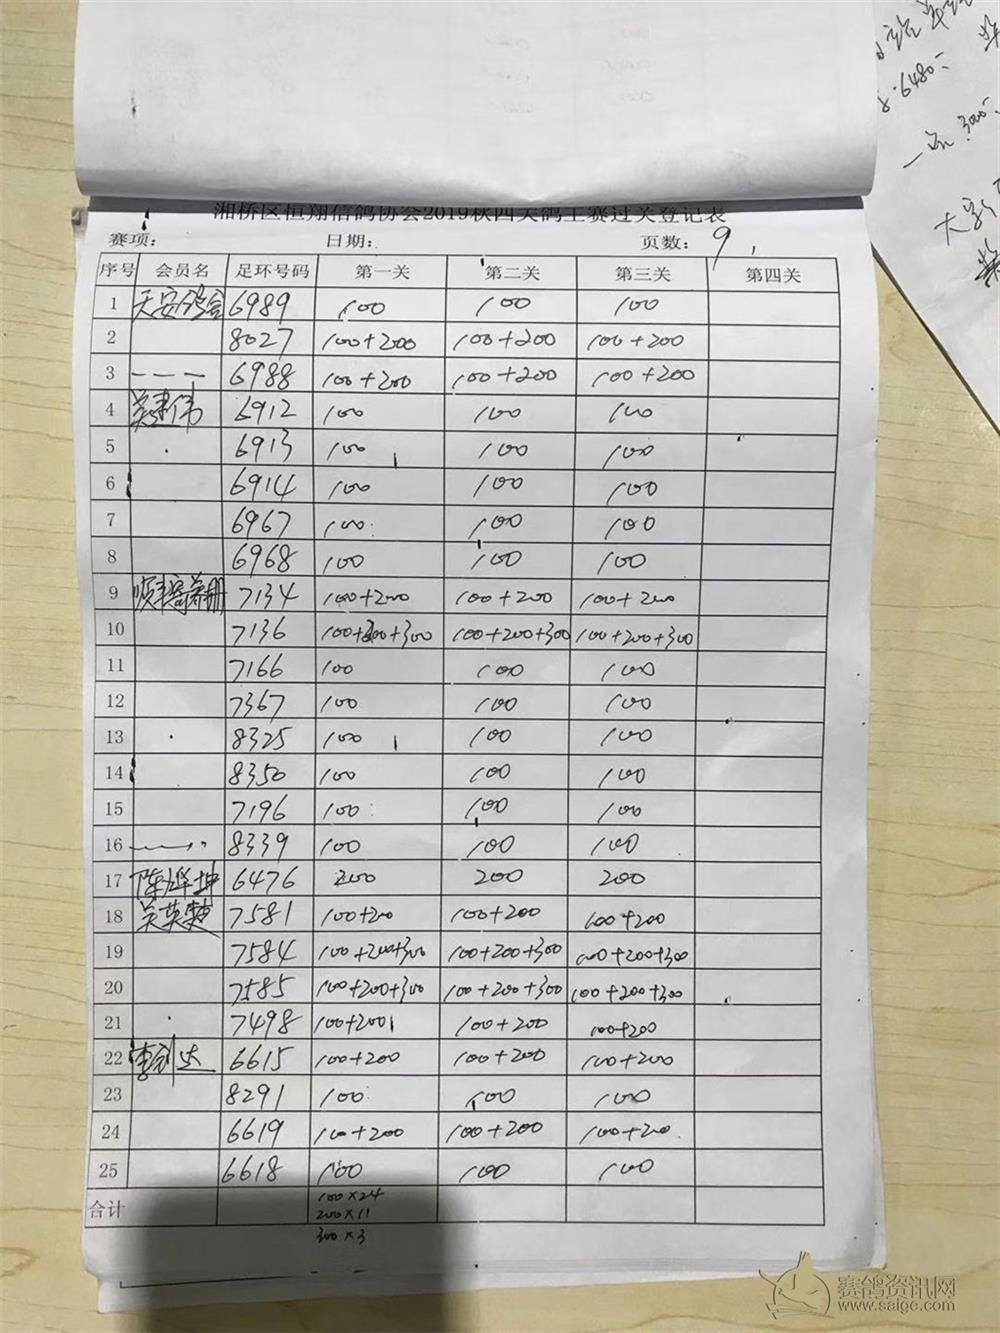 湘桥区恒翔信鸽协会2019秋四关鸽王赛过关登记表
赛项: 日期: 页数: 9
序号 会员名 足环号码 第一关 第二关 第三关 第四关
1 天安鸽舍 6989 100 100 100
2 8027 100+200 100+200 100+200
3 ––– 6988 100+200 100+200 100+200
4 吴建伟 6912 100 100 100
5 6913 100 100 100
6 6914 100 100 100
7 6967 100 100 100
8 6968 100 100 100
9 顺丰寄养棚 7134 100+200 100+200 100+200
10 7136 100+200+300 100+200+300 100+200+300
11 7166 100 100 100
12 7367 100 100 100
13 8325 100 100 100
14 8350 100 100 100
15 7196 100 100 100
16 8339 100 100 100
17 陈烨坤 6476 200 200 200
18 吴英楚 7581 100+200 100+200 100+200
19 7584 100+200+300 100+200+300 100+200+300
20 7585 100+200+300 100+200+300 100+200+300
21 7498 100+200 100+200 100+200
22 李创达 6615 100+200 100+200 100+200
23 8291 100 100 100
24 6619 100+200 100+200 100+200
25 6618 100 100 100
合计 100×24
200×11
300×3
6480
一只 300
大
赛鸽资讯网
www.saige.com